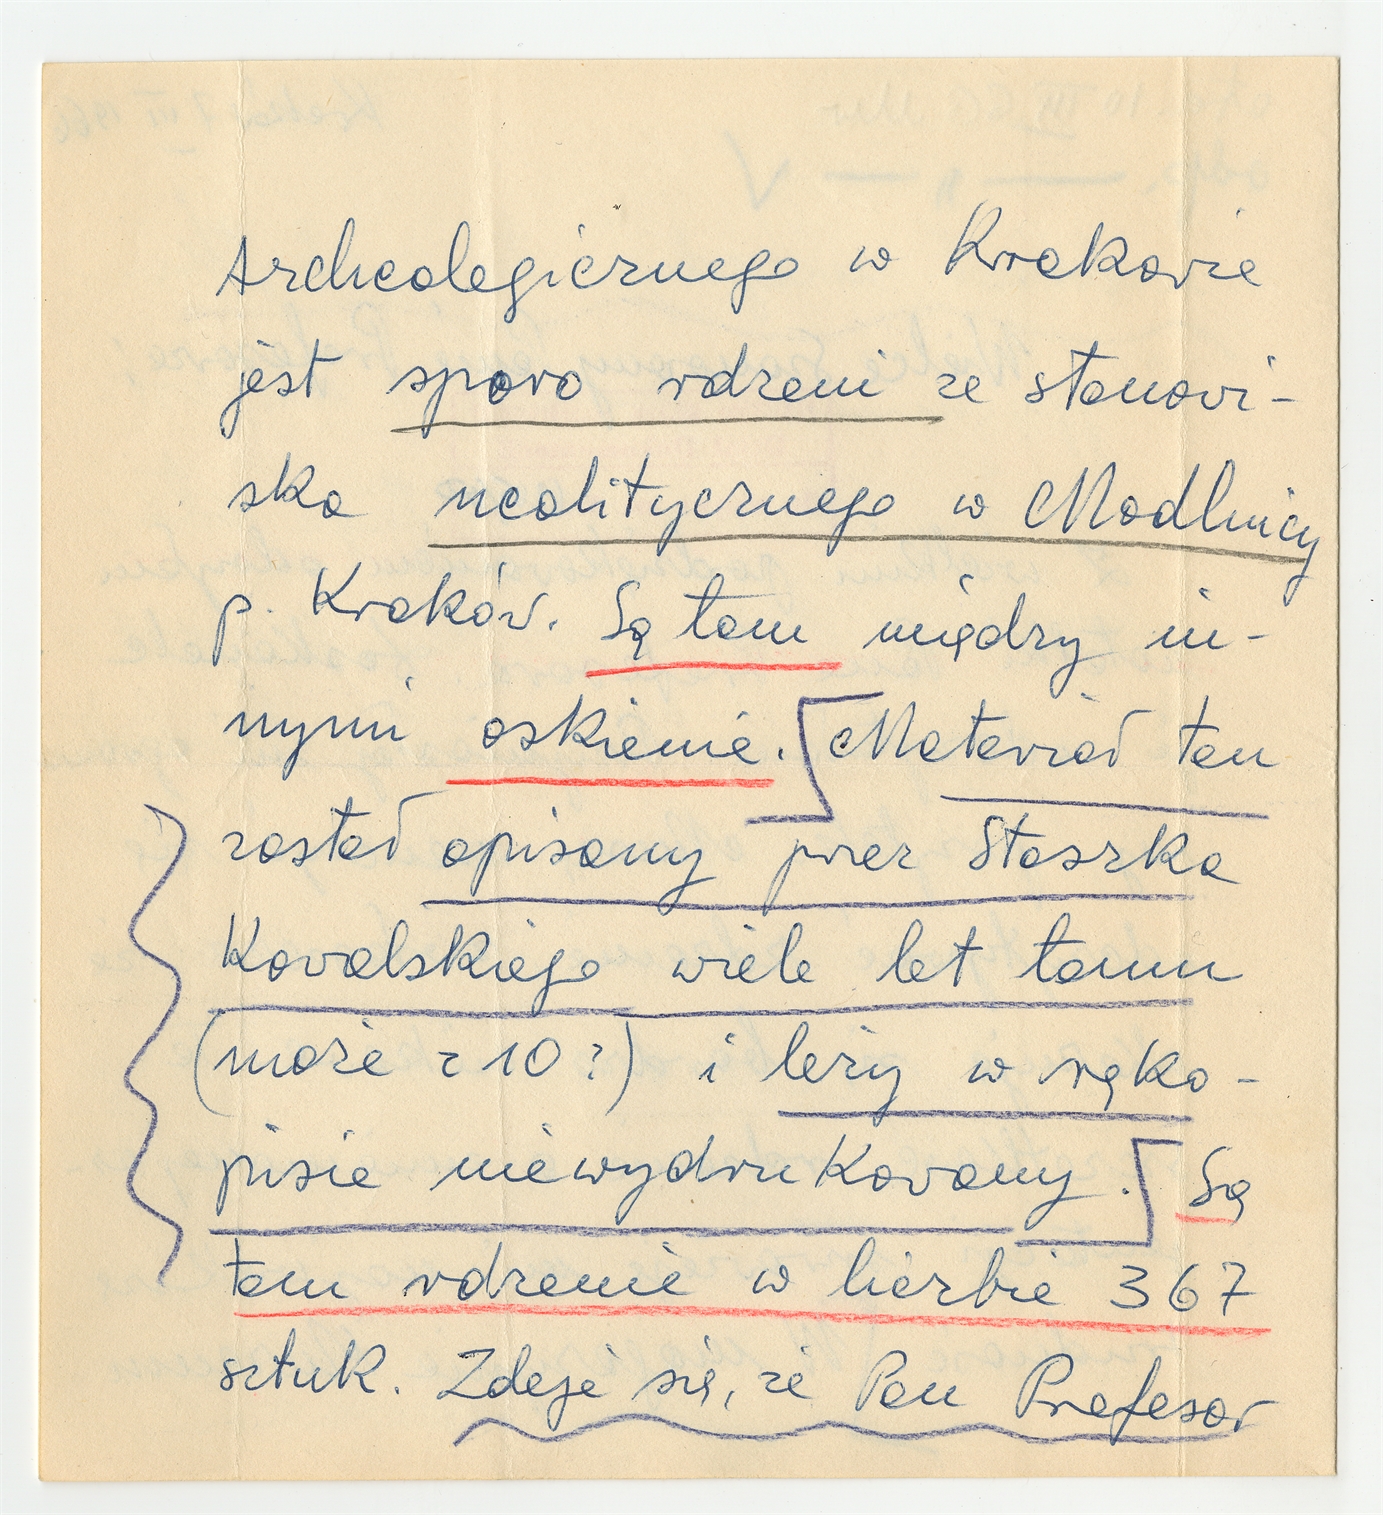 Archeologicznego w Krakowie
jest sporo rdzeni ze stanowi-
ska neolitycznego w Modlnicy
p. Kraków. Są tam między in-
nymi oskienie. Materiał ten
został opisany przez Staszka
Kowalskiego wiele let temu
(może z 10?) i leży w ręko-
pisie niewydrukowany. Są
tam rdzenie w liczbie 367
sztuk. Zdaje się, że Pan Profesor